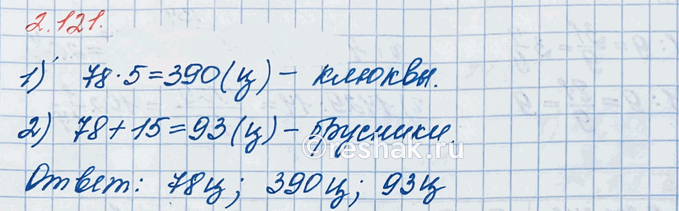 2.121.
1) 78·5=390(ц) – клюквы.
2) 78+15=93(ц) – брусники.
reshak.ru
Ответ: 78ц; 390ц; 93ц